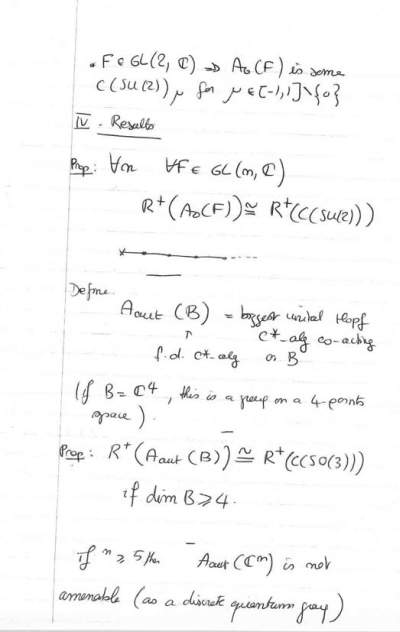 . F ∈ GL(2, ℂ) ⇒ A₀(F) is some
C(SU(2))μ for μ ∈ [-1,1]\{0}
IV. Results
Prop: ∀n ∀F ∈ GL(n, ℂ)
R⁺(A₀(F)) ≅ R⁺(C(SU(2)))
Define
Aaut (B) = biggest unital Hopf
↑ C*-alg co-acting
f.d. C*-alg on B
(if B = ℂ⁴, this is a group on a 4-points
space).
Prop: R⁺(Aaut (B)) ≅ R⁺(C(SO(3)))
if dim B ≥ 4.
if n ≥ 5 then Aaut (ℂⁿ) is not
amenable (as a discrete quantum group)